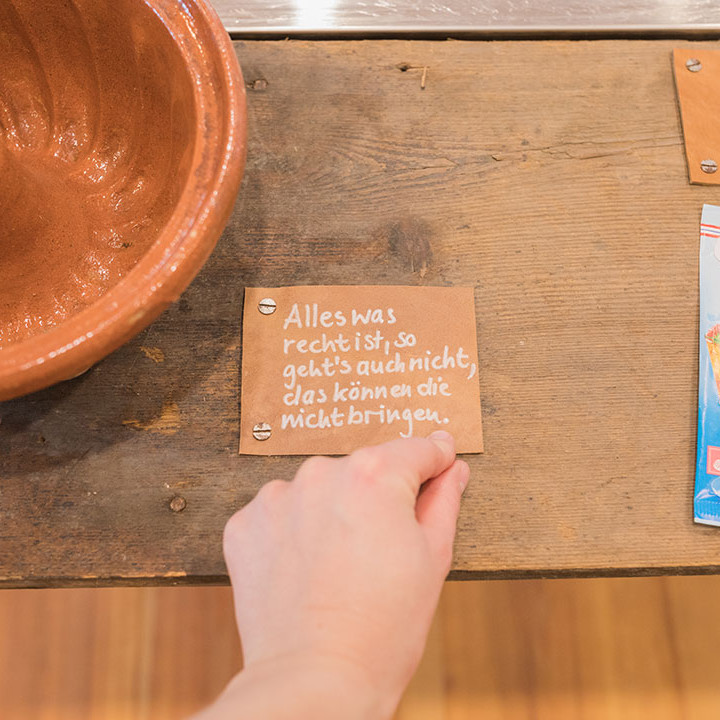 Alles was
recht ist, so
geht's auch nicht,
das können die
nicht bringen.